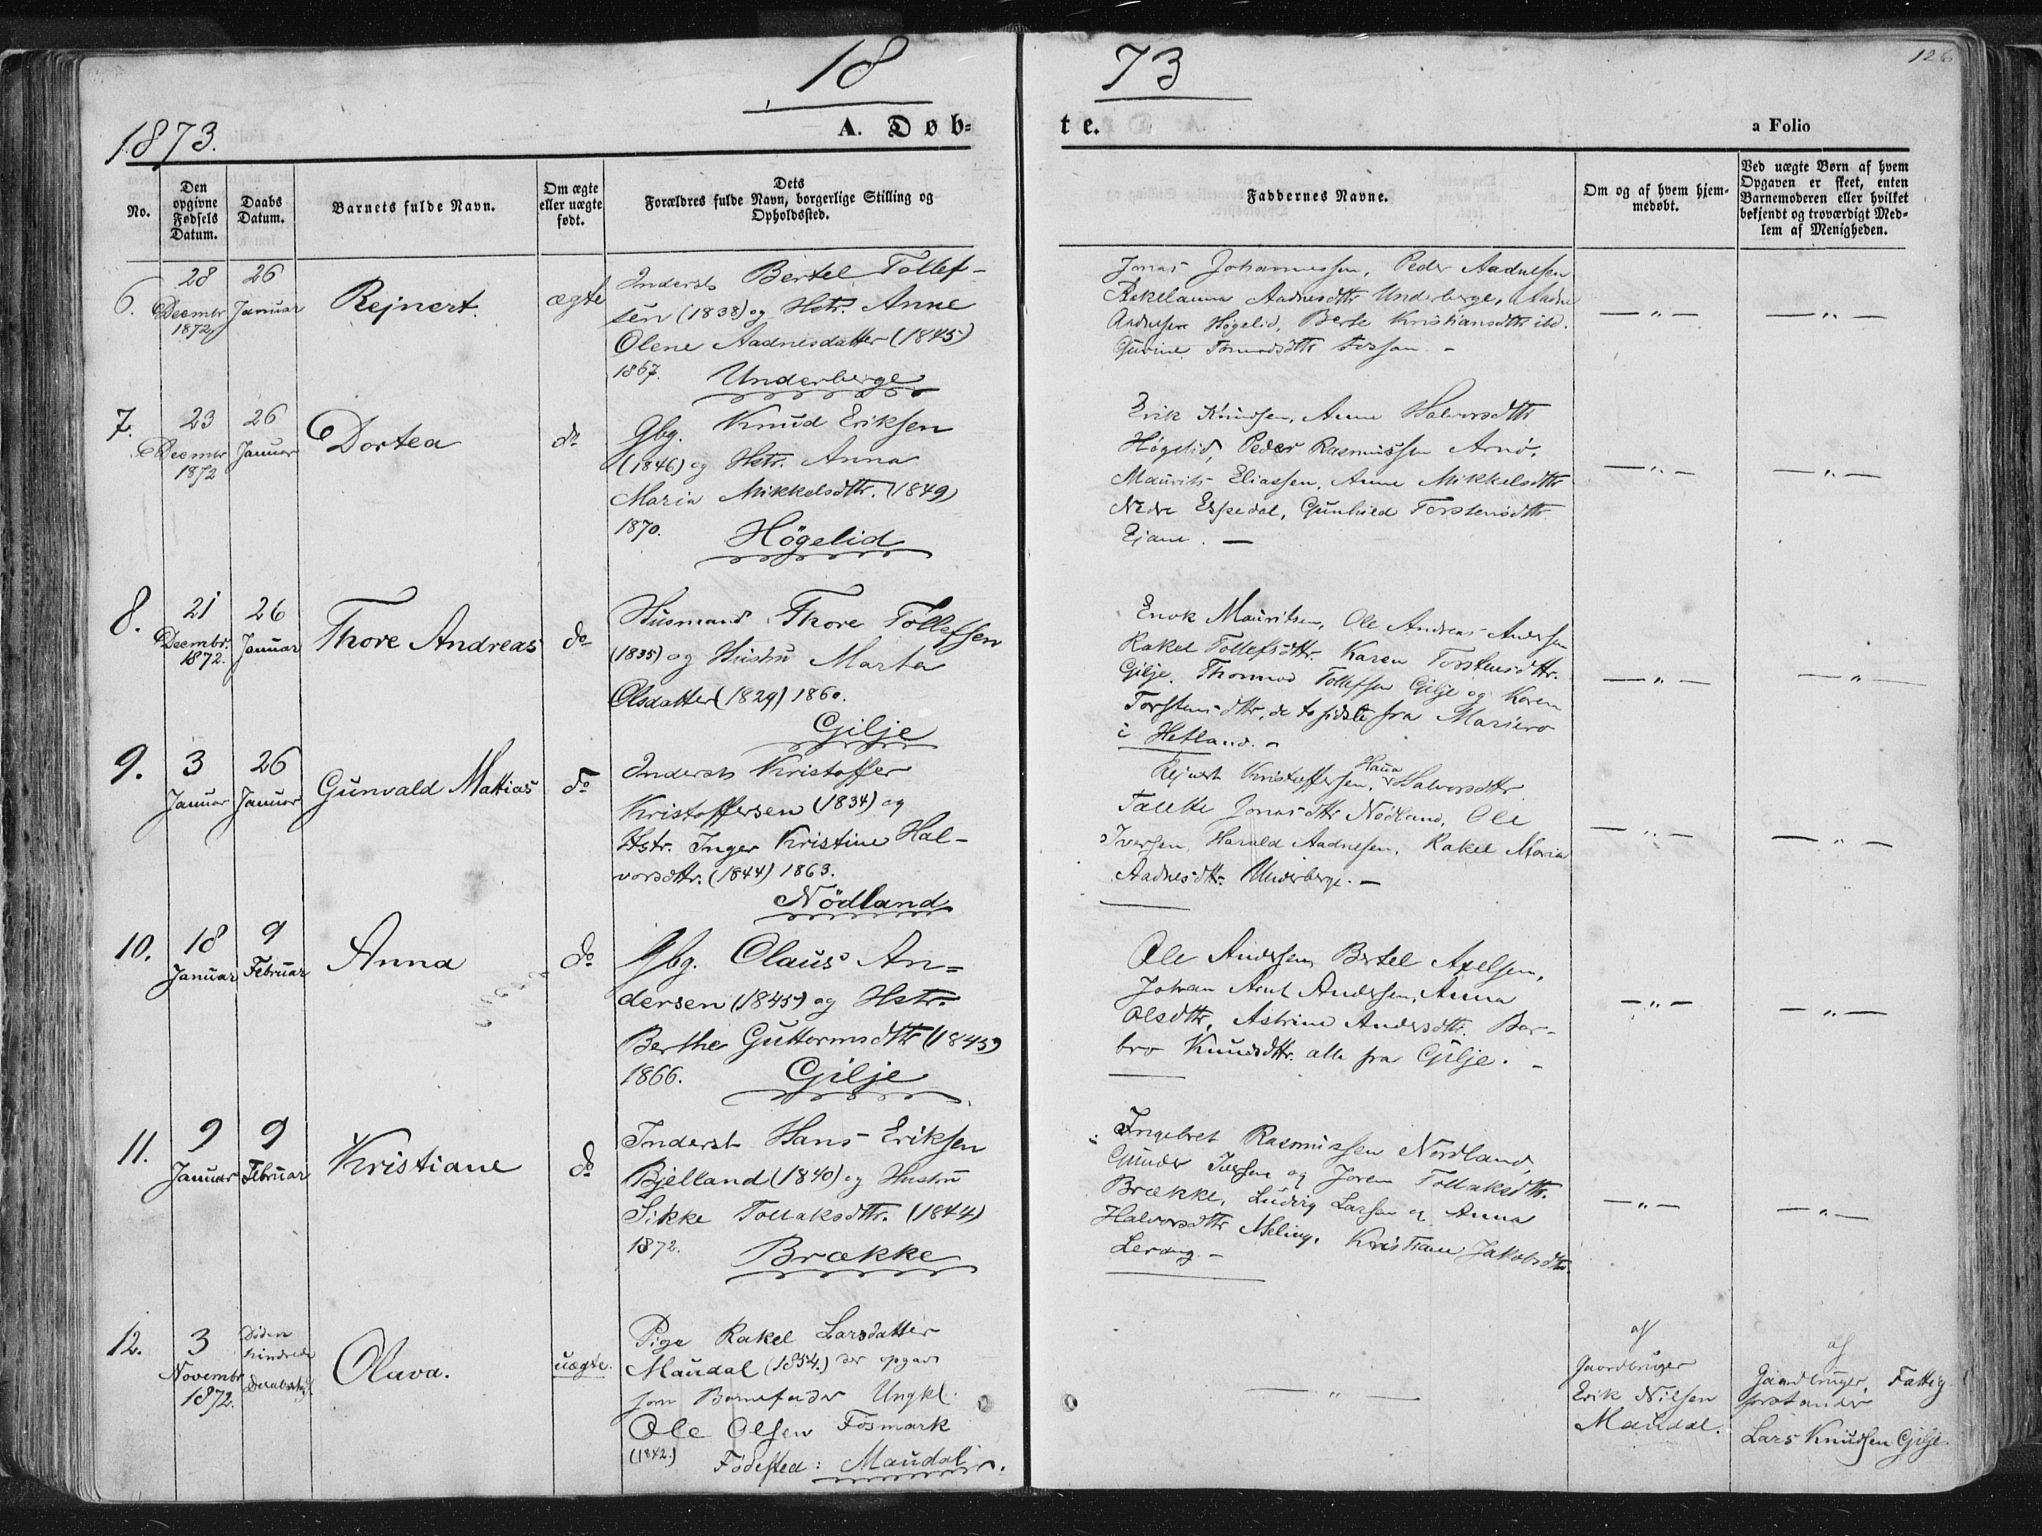 18
73
126
1873.
A. Døb=
te.
a Folio
No.
Den opgivne Fødsels Datum.
Daabs Datum.
Barnets fulde Navn.
Om ægte eller uægte født.
Dets Forældres fulde Navn, borgerlige Stilling og Opholdssted.
Faddernes Navne.
Om og af hvem hjemmedøbt.
Ved uægte Børn af hvem Opgaven er skeet, enten Barnemoderen eller hvilket bekjendt og troværdigt Medlem af Menigheden.
6.
28 Decembr 1872
26 Januar
Rejnert.
ægte
Inderst Bertel Tollef-
sen (1838) og Hstr. Anne
Olene Aadnesdatter (1845)
1867. Underberge
Jonas Johannessen, Peder Aadnesen
Rakelanna Aadnesdttr Underberge, Aadne
Aadnesen Høgelid, Berte Kristiansdttr ibd.
Gurine Tormodsdttr Fossan. -
— „ —
— „ —
7.
23 Decembr 1872
26 Januar
Dortea
do
Gbg. Knud Eriksen
(1846) og Hstr. Anna
Maria Mikkelsdttr. (1849)
1870. Høgelid
Erik Knudsen, Anne Halvorsdttr
Høgelid, Peder Rasmussen Arnø,
Maurits Eliassen, Anne Mikkelsdttr
Nedre Espedal, Gunhild Torstensdttr
Ejane. —
— „ —
— „ —
8.
21 Decembr. 1872.
26 Januar
Thore Andreas
do
Husmand Thore Tollefsen
(1835) og Hustru Marta
Olsdatter (1829) 1860.
Gilje
Enok Mauritsen, Ole Andreas Andersen
Rakel Tollefsdttr. Karen Torstensdttr.
Gilje. Thormod Tollefsen Gilje og Karen
Torstensdttr, de to sidste fra Mariero
i Hetland. -
— „ —
— „ —
9.
3 Januar
26 Januar
Gunvald Mattias
do
Inderst Kristoffer
Kristoffersen (1834) og
Hstr. Inger Kristine Hal-
vorsdttr. (1844) 1863.
Nødland
Rejnert Kristoffersen, Hana Halvorsdttr.
Talette Jonasdttr Nødland, Ole
Iversen, Harald Aadnesen, Rakel Maria
Aadnesdttr. Underberge. —
— „ —
— „ —
10.
18 Januar
9 Februar
Anna
do
Gbg. Claus An=
dersen (1845) og Hstr.
Berthe Guttormsdttr (1845)
1866. Gilje
Ole Andersen, Bertel Axelsen,
Johan Arnt Andersen, Anna
Olsdttr, Astrine Andersdttr. Bar-
bro Knudsdttr. alle fra Gilje. -
— „ —
— „ —
11.
9 Januar
9 Februar
Kristiane
do
Inderst Hans Eriksen
Bjelland (1840) og Hustru
Sikke Tollaksdttr. (1844)
1872. Brække
Ingebret Rasmussen Nordland,
Gunder Iversen og Joren Tollaksdttr.
Brække, Ludvig Larsen og Anna
Halvorsdttr Meling, Kristiane Jakobsdttr
Lerang -
— „ —
— „ —
12.
3 Novembr 1872.
Døden hindrede
Olava.
uægte.
Pige Rakel Larsdatter
Maudal (1854.) der opgav
som Barnefader Ungkl.
Ole Olsen Fosmark
(1842.)
Fødested: Maudal.
— „ —
af
Gaardbruger
Erik Nilsen
Maudal.
af
Gaardbruger, Fattig
forstander
Lars Knudsen Gilje.